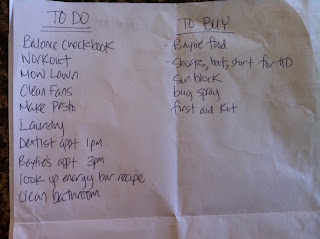 TO DO
Balance checkbook
Workout
Mow Lawn
Clean Fans
Make Pesto
Laundry
Dentist appt 1pm
Baylie's appt 3pm
look up energy bar recipe
clean bathroom
TO BUY
- Baylie food
- shorts, hat, shirt for HD
sun block
bug spray
first aid kit